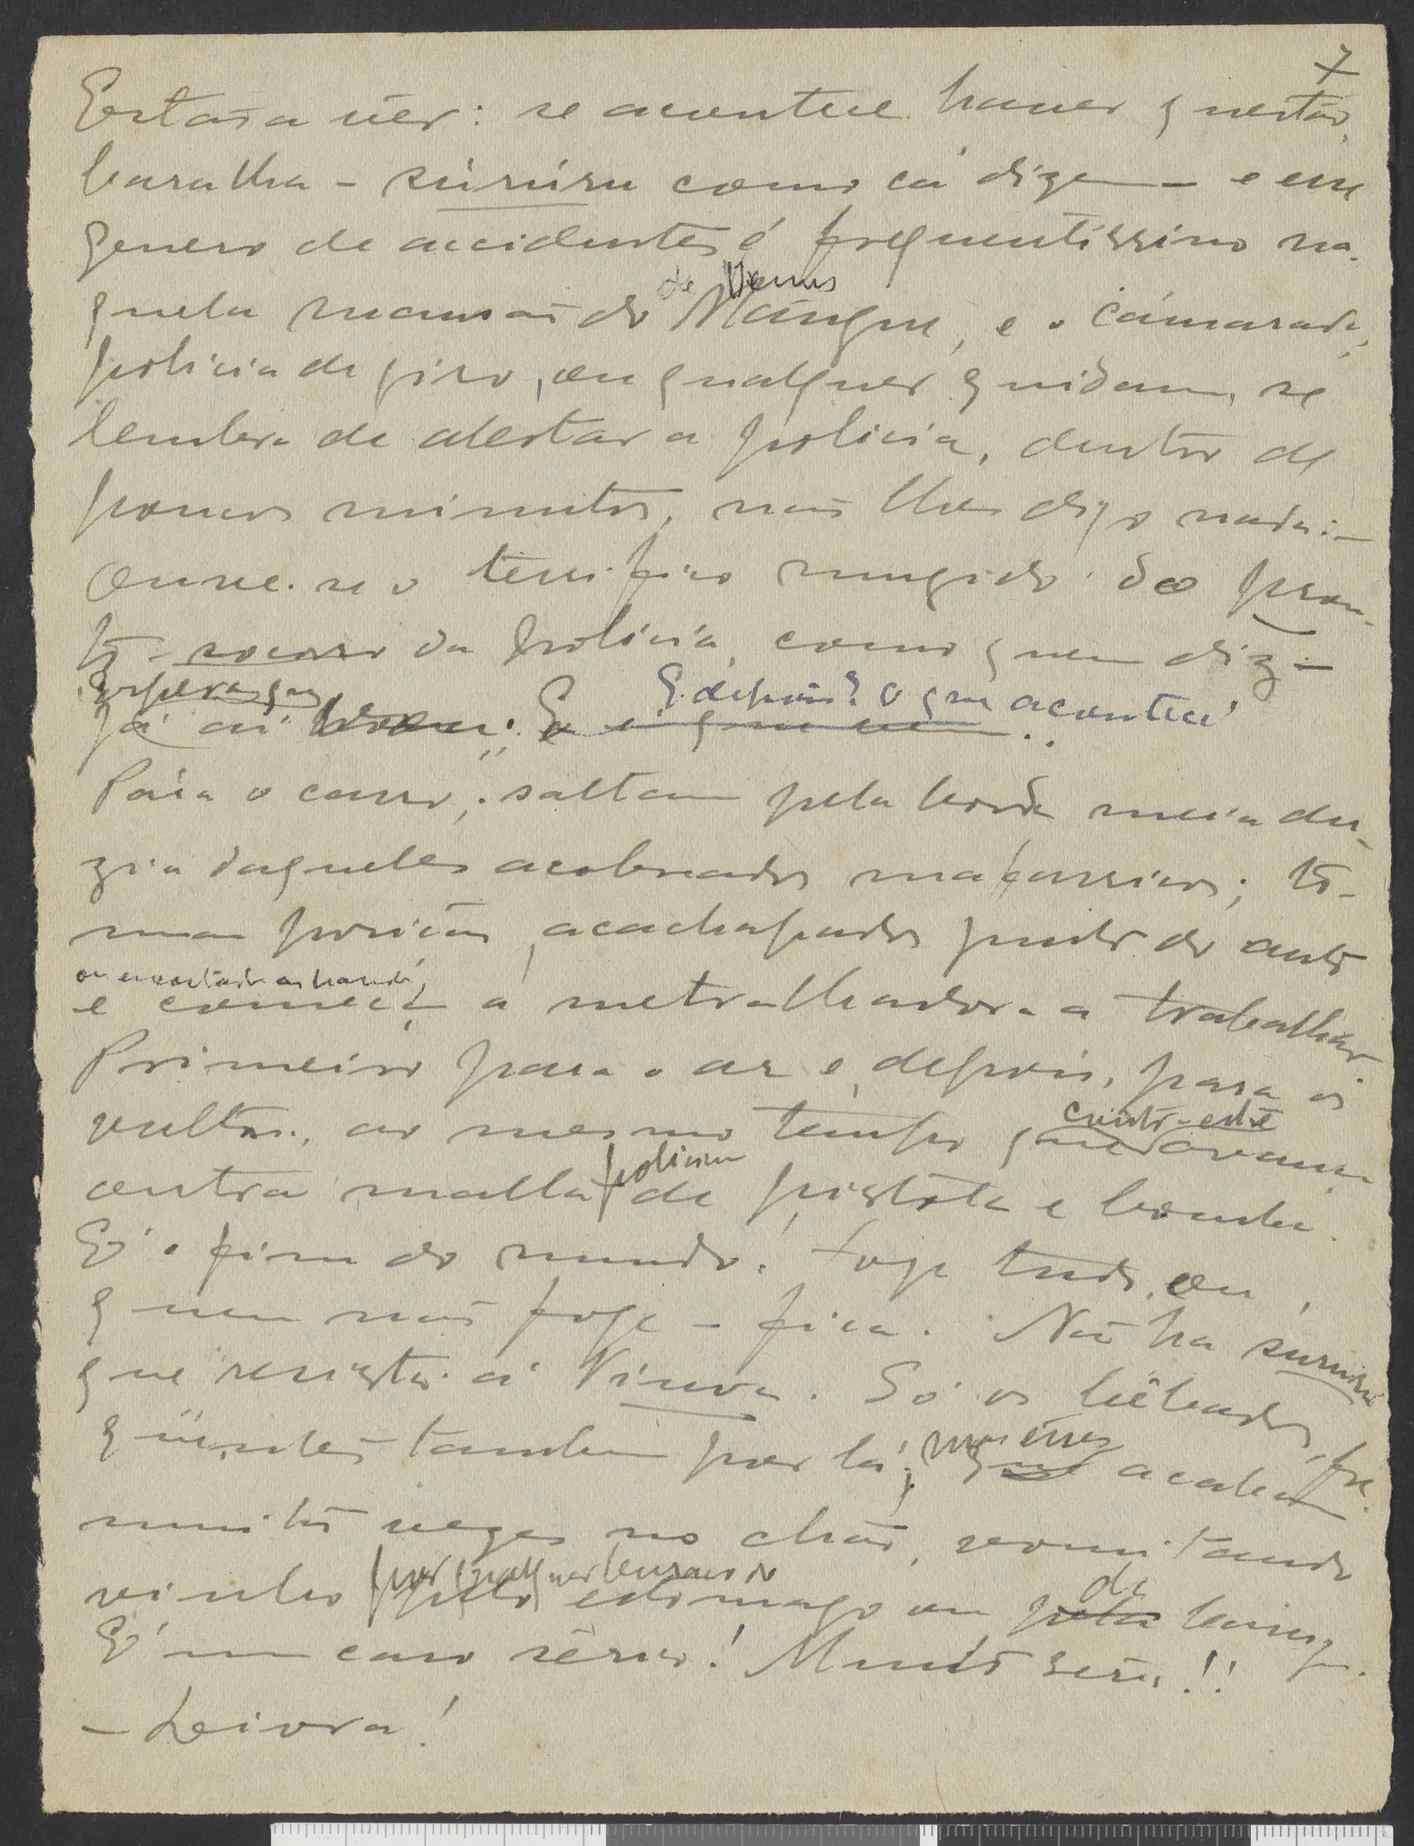 7
Estás a vêr: se acontece haver questão,
baralha - súrúru como cá dizem - e esse
genero de accidentes é frequentissimo na-
de Venus
quela mansão do Mángue, e o camarada,
policia de giro, ou qualquer quidam, se
lembra de alertar a policia, dentro de
poucos minutos, não lhes digo nada: -
ouve-se o terrifico rugido do prom-
to-socorro da policia, como quem diz: -
E depois? O que acontece?
já ahi
Pára o carro; saltam pela borda meia du-
zia daqueles acobreados; to-
mam posição, acachapados junto do auto
e começa a metralhadora a trabalhar
Primeiro para o ar e, depois, para os
vultos, ao mesmo tempo que
outra malta de pistola e bomba.
policial
É o fim do mundo! Foge tudo, ou,
quem não foge - fica. Não ha sururú
que resista á Viuva. Só os bêbados, fre-
qüentes tambem por lá; acabam
muitas vezes no chão, vomitando
vinho por qualquer buraco do estomago ou de bariga.
É um caso sério! Muito serio!!
- Leiova!